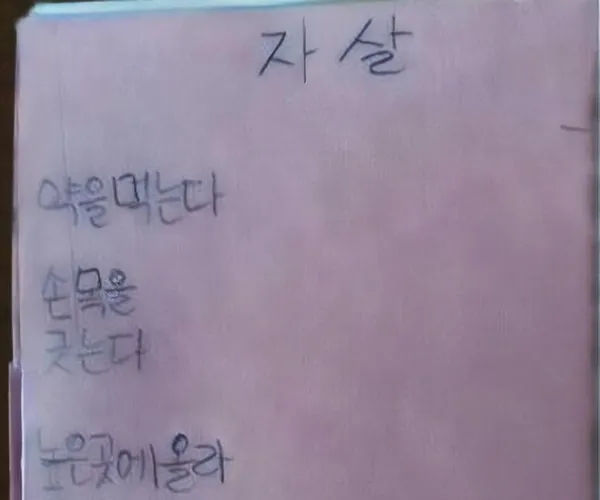 자살
약을먹는다
손목을
긋는다
높은곳에올라